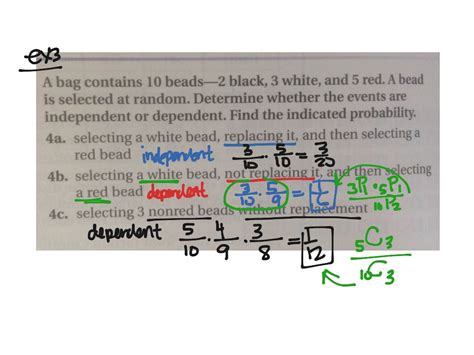 ex3
A bag contains 10 beads—2 black, 3 white, and 5 red. A bead
is selected at random. Determine whether the events are
independent or dependent. Find the indicated probability.
4a. selecting a white bead, replacing it, and then selecting a
red bead independent 3/10 · 5/10 = 3/20
4b. selecting a white bead, not replacing it, and then selecting
a red bead dependent 3/10 · 5/9 = 1/6 3P1 · 5P1 / 10P2
4c. selecting 3 nonred beads without replacement
dependent 5/10 · 4/9 · 3/8 = 1/12 5C3 / 10C3